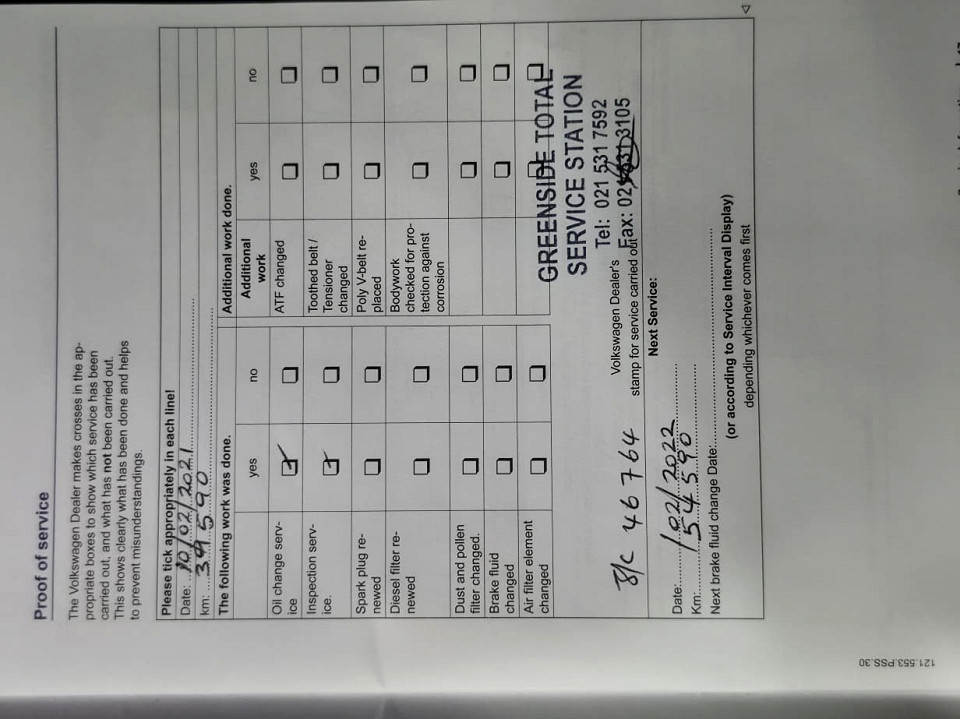 Proof of service
The Volkswagen Dealer makes crosses in the ap-
propriate boxes to show which service has been
carried out, and what has not been carried out.
This shows clearly what has been done and helps
to prevent misunderstandings.
Please tick appropriately in each line!
Date: 10/02/2021
km: 39590
The following work was done.
yes
no
Oil change serv-
ice
Inspection serv-
ice.
Spark plug re-
newed
Diesel filter re-
newed
Dust and pollen
filter changed.
Brake fluid
changed
Air filter element
changed
Additional work done.
Additional
work
yes
no
ATF changed
Toothed belt /
Tensioner
changed
Poly V-belt re-
placed
Bodywork
checked for pro-
tection against
corrosion
GREENSIDE TOTAL
SERVICE STATION
Tel: 021 531 7592
Fax: 021 531 3105
46764
Volkswagen Dealer's
stamp for service carried out
Next Service:
Date: /02/2022
Km: 54590
Next brake fluid change Date:
(or according to Service Interval Display)
depending whichever comes first
121.553.PSS.30